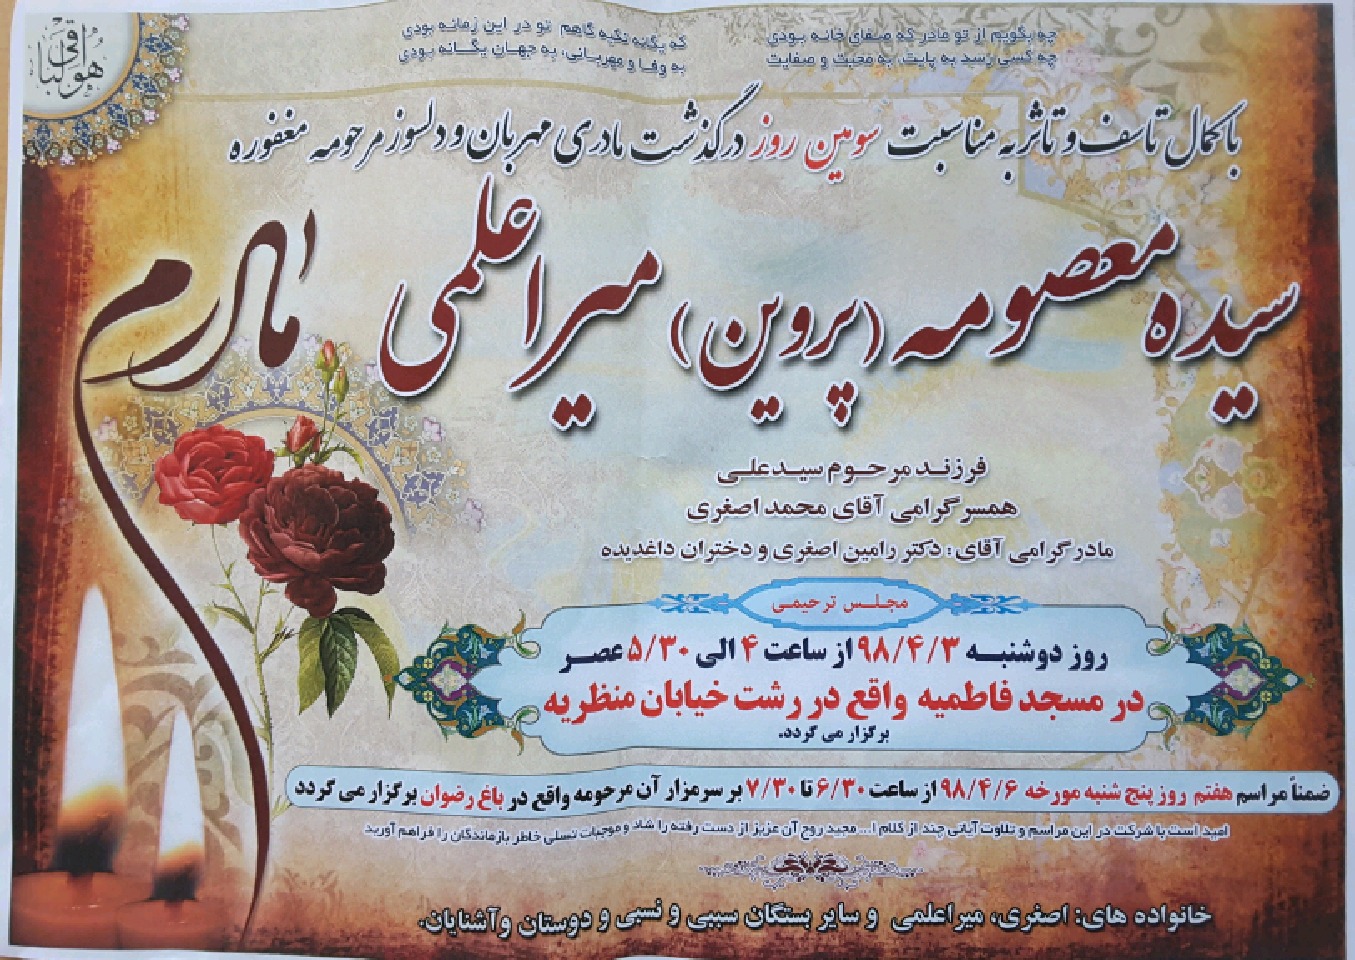 هوالباقی
چه بگویم از تو مادر که صفای خانه بودی
که یگانه تکیه گاهم تو در این زمانه بودی
چه کسی رسد به پایت، به محبت و صفایت
به وفا و مهربانی، به جهان یگانه بودی
با کمال تاسف و تاثر به مناسبت سومین روز درگذشت مادری مهربان و دلسوز مرحومه مغفوره
سیده معصومه (پروین) میراعلمی
مادرم
فرزند مرحوم سیدعلی
همسر گرامی آقای محمد اصغری
مادر گرامی آقای: دکتر رامین اصغری و دختران داغدیده
مجلس ترحیمی
روز دوشنبه ۹۸/۴/۳ از ساعت ۴ الی ۵/۳۰ عصر
در مسجد فاطمیه واقع در رشت خیابان منظریه
برگزار می گردد.
ضمناً مراسم هفتم روز پنج شنبه مورخه ۹۸/۴/۶ از ساعت ۶/۳۰ تا ۷/۳۰ بر سر مزار آن مرحومه واقع در باغ رضوان برگزار می گردد
امید است با شرکت در این مراسم و تلاوت آیاتی چند از کلام ا... مجید روح آن عزیز از دست رفته را شاد و موجبات تسلی خاطر بازماندگان را فراهم آورید
خانواده های: اصغری، میراعلمی و سایر بستگان سببی و نسبی و دوستان و آشنایان.